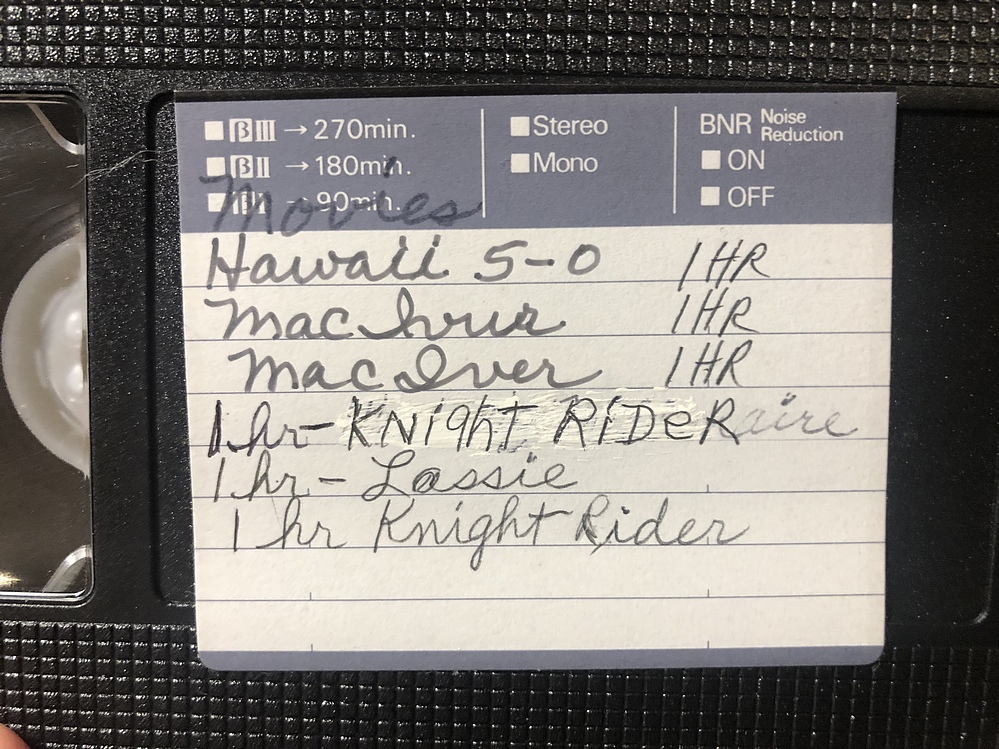 βIII → 270min.
βII → 180min.
βI → 90min.
Stereo
Mono
BNR Noise Reduction
ON
OFF
Movies
Hawaii 5-0 1HR
MacIvur 1HR
MacIver 1HR
1 hr- KNighT RiDeR aire
1 hr - Lassie
1 hr Knight Rider